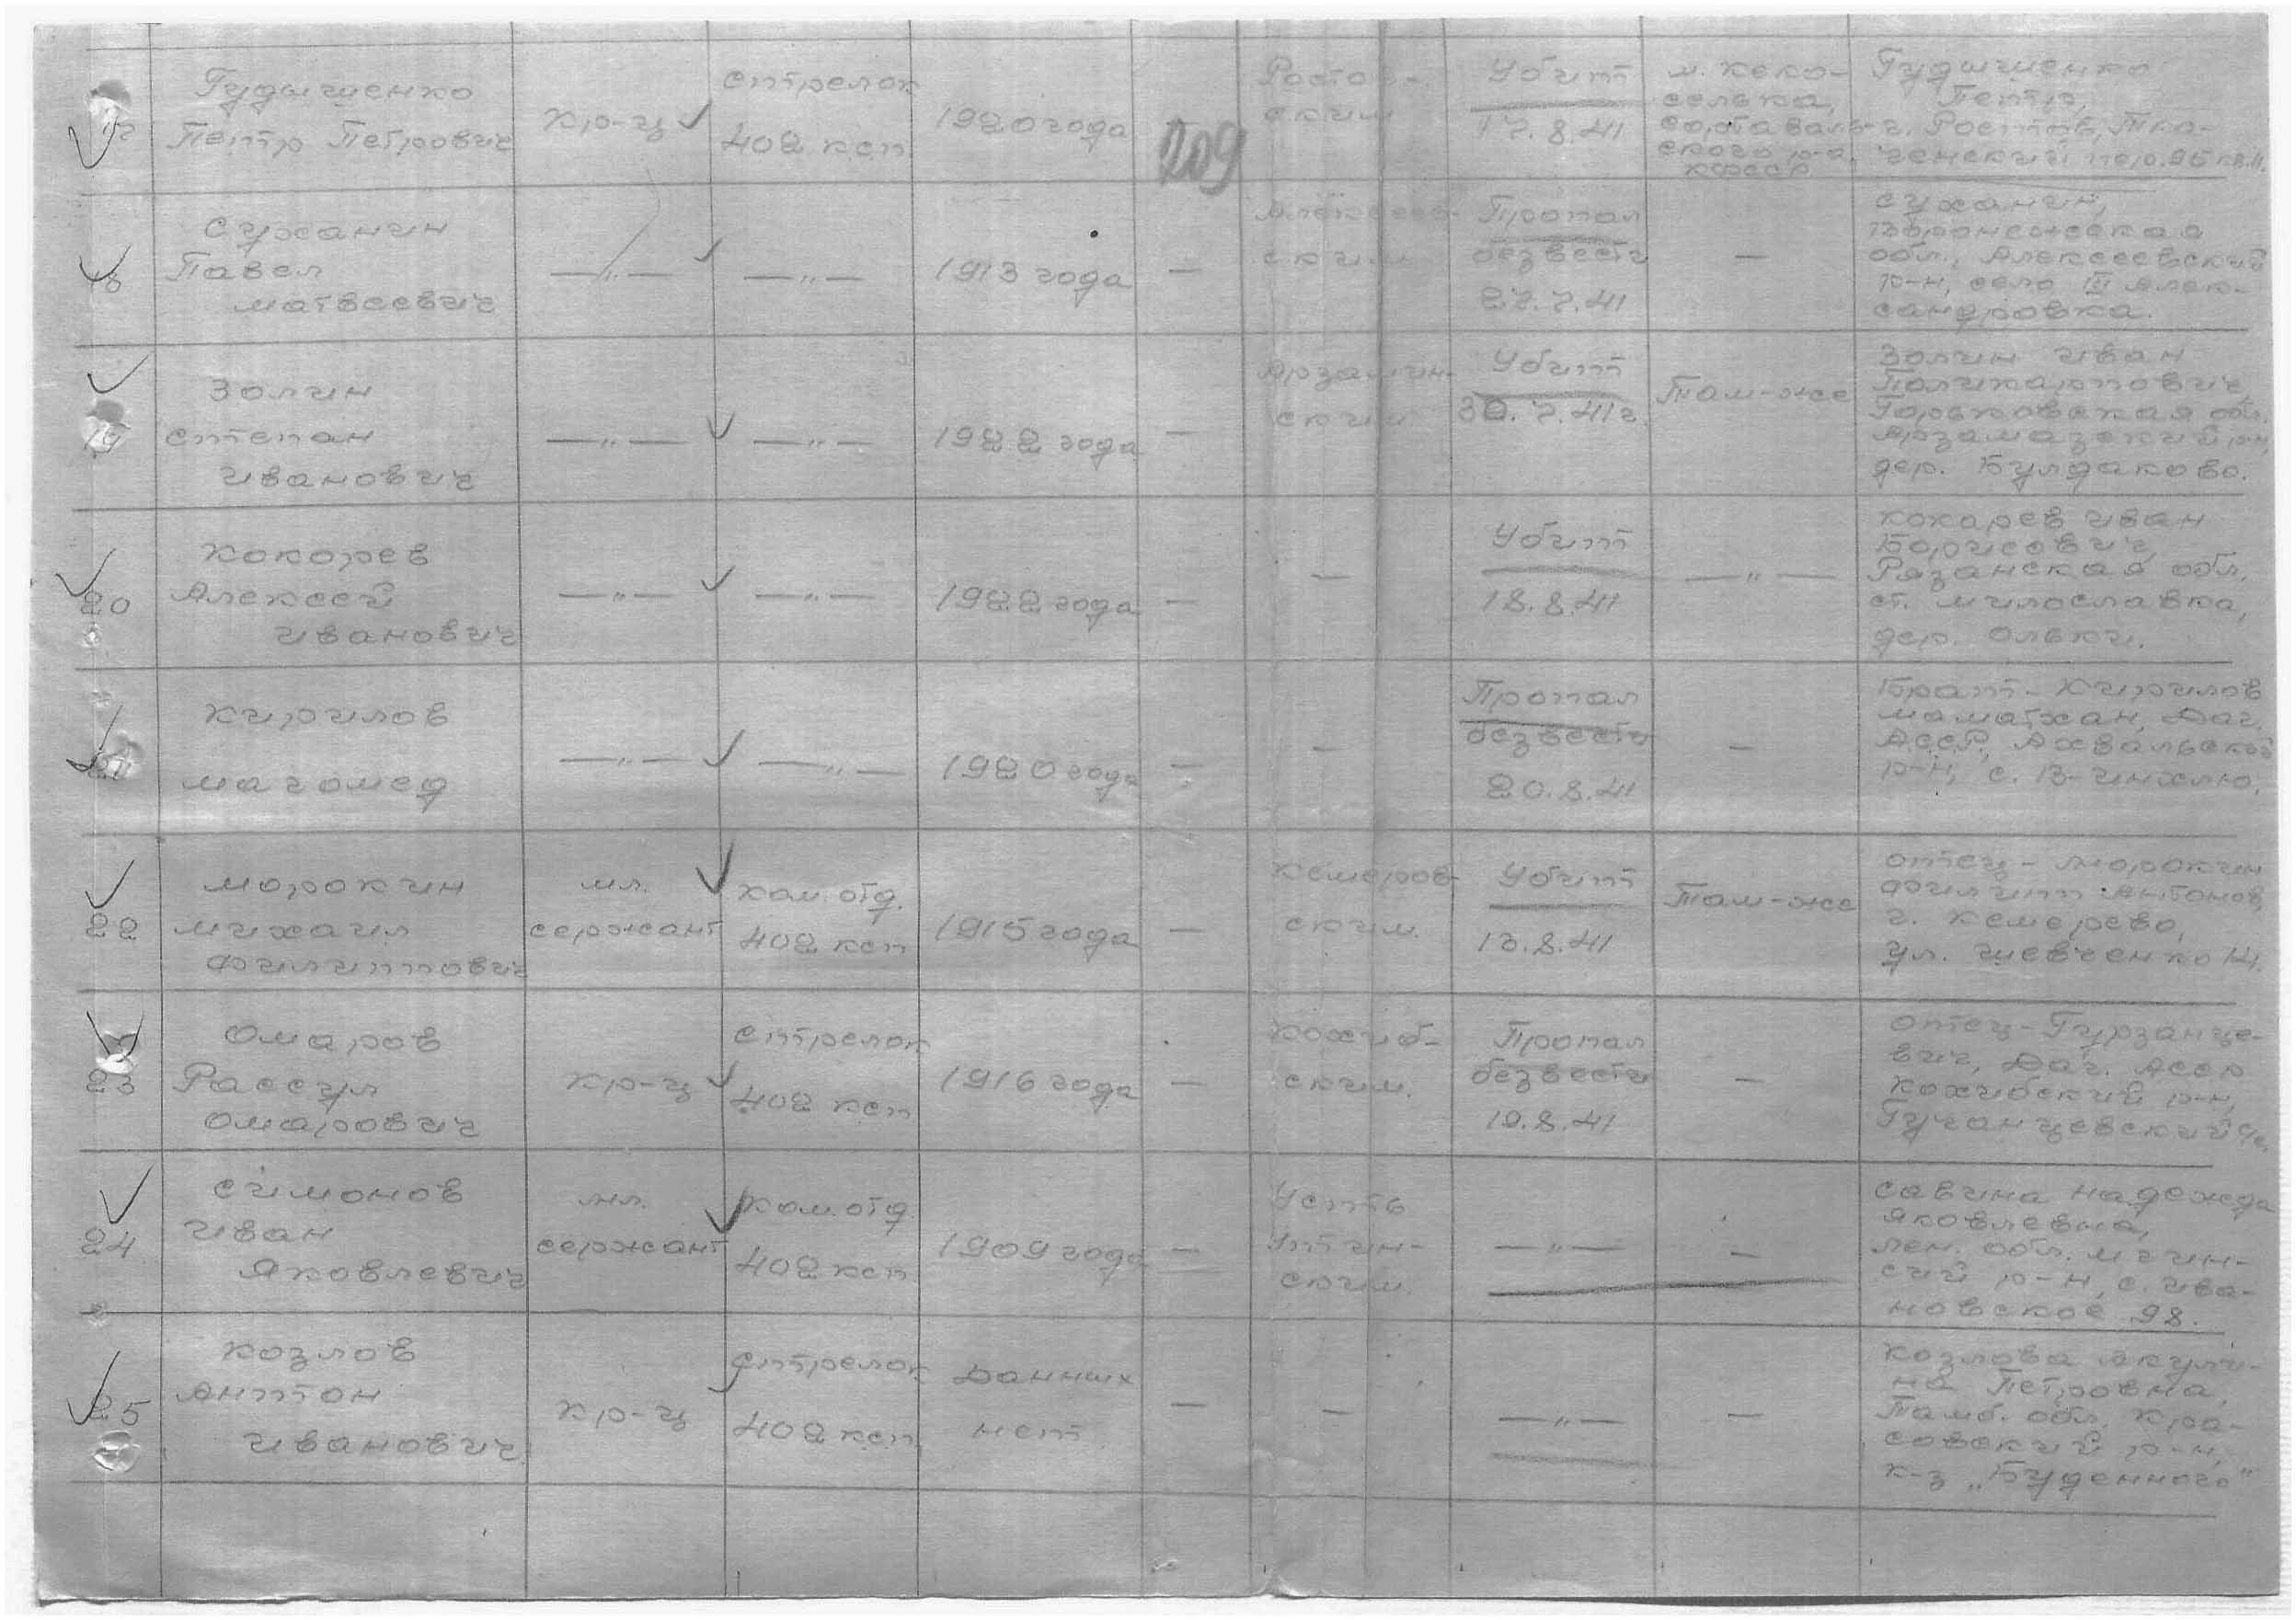 17
Гудыменко
Петр Петрович
кр-ц
стрелок
402 ксп
1920 года
209
Ростов-
ским
Убит
17.8.41
сорtаваль-
ского р-а,
КФССР
Гудыменко
Петр,
г. Ростов, Тка-
ченский пер. 95 кв. 11.
18
Суханин
Павел
Матвеевич
—"—
—"—
1913 года
—
Алексеев-
ским
Пропал
безвести
27.7.41
—
Суханин,
Воронежская
обл., Алексеевский
р-н, село III Алек-
сандровка.
19
Золин
Степан
Иванович
—"—
—"—
1922 года
—
ским
Убит
30.7.41г.
Там-же
Золин Иван
Поликарпович,
Горьковская обл.
Арзамазский р-н,
дер. Булдаково.
20
Кокорев
Алексей
Иванович
—"—
—"—
1922 года
—
—
Убит
18.8.41
—"—
Кокарев Иван
Борисович,
Рязанская обл.
ст. Милославка,
дер. Ольки.
21
Кирилов
Магомед
—"—
—"—
1920 года
—
—
Пропал
безвести
20.8.41
—
Брат - Кирилов
Маматхан, Даг.
АССР, Ахвальской
р-н, с. В-Инхлю.
22
Морокин
Михаил
Филиппович
мл.
сержант
ком. отд.
402 ксп
1915 года
—
Кемеров-
ским.
Убит
13.8.41
Там-же
Отец - Морокин
Филипп Антонов,
г. Кемерево,
ул. Шевченко 14.
23
Омаров
Рассул
Омарович
кр-ц
стрелок
402 ксп
1916 года
—
Кохиб-
ским.
Пропал
безвести
19.8.41
—
Отец - Гурзанце-
вич, Даг. АССР
Кохибский р-н,
24
Симонов
Иван
Яковлевич
мл.
сержант
ком. отд.
402 ксп
1909 года
—
Усть
ским.
—"—
—
Савина Надежда
Яковлевна,
Лен. обл. Мгин-
сий р-н, с. Ива-
новское 98.
25
Козлов
Антон
Иванович
кр-ц
стрелок
402 ксп
Данных
нет
—
—
—"—
—
Козлова Акули-
на Петровна,
Тамб. обл. Кра-
совский р-н,
к-з „Буденного"